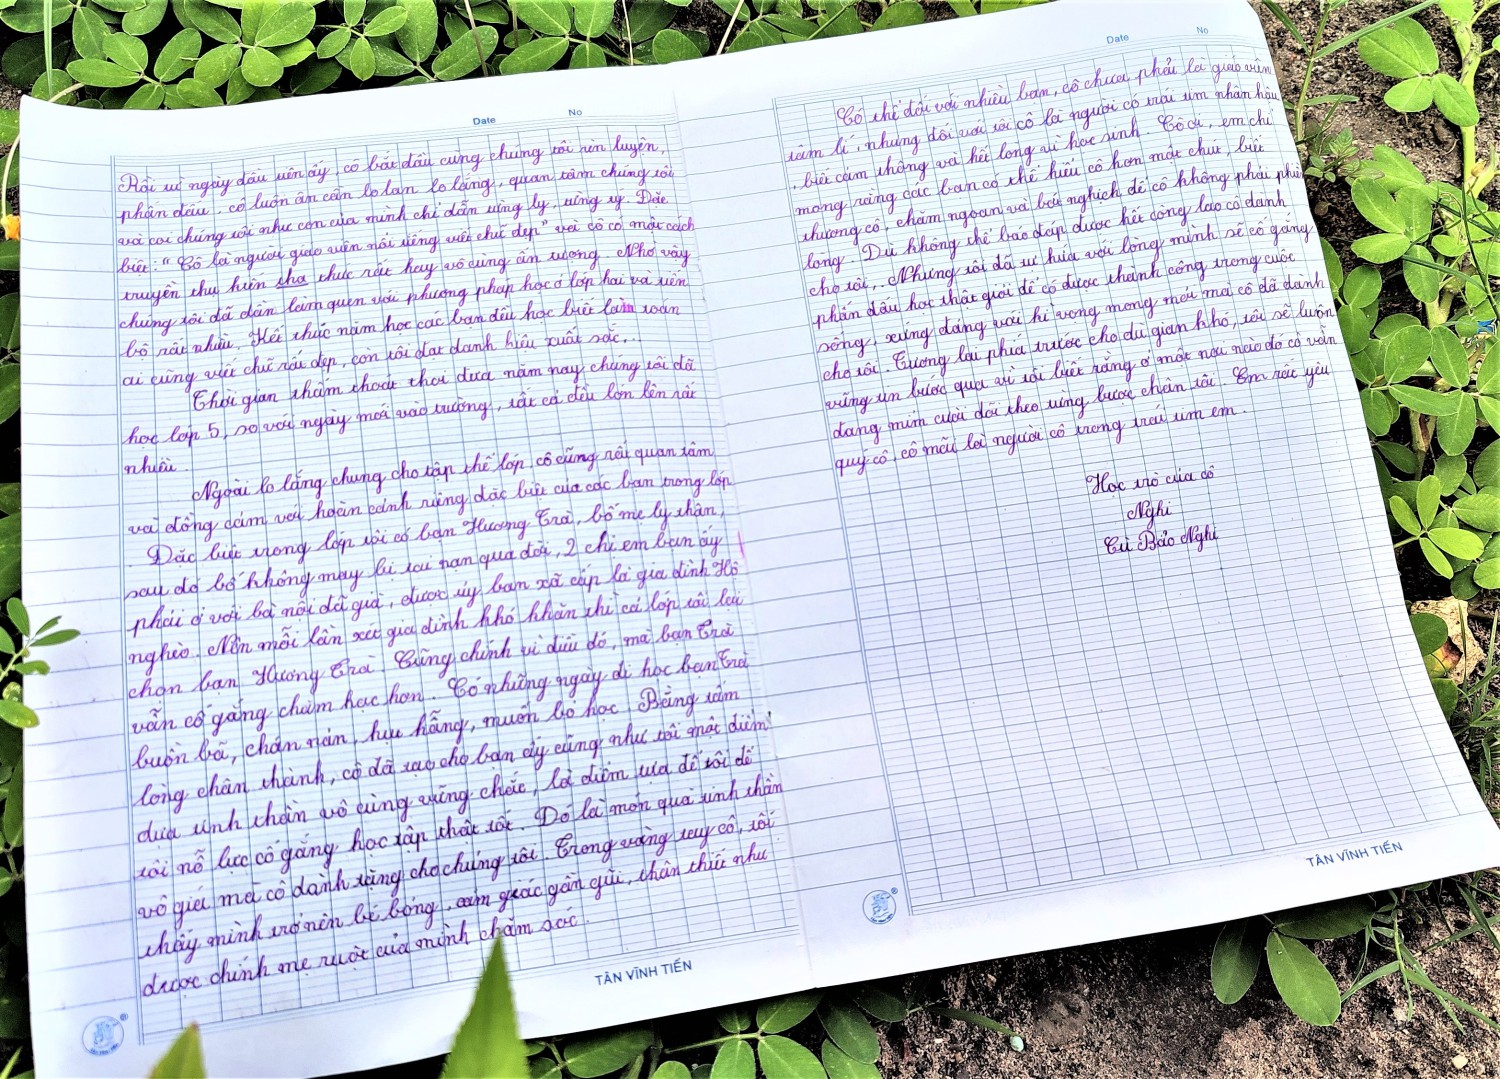 Date No
Rồi từ ngày đầu tiên ấy, cô bắt đầu cùng chúng tôi rèn luyện,
phấn đấu. cô luôn ân cần lo lan lo lắng, quan tâm chúng tôi
và coi chúng tôi như con của mình chỉ dẫn từng ly, từng tý. Đặc
biệt: "Cô là người giáo viên nổi tiếng viết chữ đẹp" và cô có một cách
truyền thụ kiến tha thức rất hay vô cùng ấn tượng. Nhờ vậy
chúng tôi đã dần làm quen với phương pháp học ở lớp hai và tiến
bộ rất nhiều. Kết thúc năm học các bạn đều học biết làm toán
ai cũng viết chữ rất đẹp, còn tôi đạt danh hiệu xuất sắc...
Thời gian thấm thoát thoi đưa năm nay chúng tôi đã
học lớp 5, so với ngày mới vào trường, tất cả đều lớn lên rất
nhiều.
Ngoài lo lắng chung cho tập thể lớp, cô cũng rất quan tâm
và đồng cảm với hoàn cảnh riêng đặc biệt của các bạn trong lớp
. Đặc biệt trong lớp tôi có bạn Hương Trà, bố mẹ ly thân,
sau đó bố không may bị tai nạn qua đời, 2 chị em bạn ấy
phải ở với bà nội đã già, được ủy ban xã cấp là gia đình Hộ
nghèo. Nên mỗi lần xét gia đình khó khăn thì cả lớp tôi lại
chọn bạn Hương Trà. Cũng chính vì điều đó, mà bạn Trà
vẫn cố gắng chăm học hơn. Có những ngày đi học bạn Trà
buồn bã, chán nản, hụt hẫng, muốn bỏ học. Bằng tấm
lòng chân thành, cô đã tạo cho bạn ấy cũng như tôi một điểm
dựa tinh thần vô cùng vững chắc, là điểm tựa để tôi để
tôi nỗ lực cố gắng học tập thật tốt. Đó là món quà tinh thần
vô giá mà cô dành tặng cho chúng tôi. Trong vòng tay cô, tôi
thấy mình trở nên bé bỏng, cảm giác gần gũi, thân thiết như
được chính mẹ ruột của mình chăm sóc.
TÂN VĨNH TIẾN
Date No
Có thể đối với nhiều bạn, cô chưa phải là giáo viên
tâm lí, nhưng đối với tôi cô là người có trái tim nhân hậu
, biết cảm thông và hết lòng vì học sinh. Cô ơi, em chỉ
mong rằng các bạn có thể hiểu cô hơn một chút, biết
thương cô, chăm ngoan và bớt nghịch để cô không phải phiền
lòng. Dù không thể báo đáp được hết công lao cô dành
cho tôi,. Nhưng tôi đã tự hứa với lòng mình sẽ cố gắng
phấn đấu học thật giỏi để có được thành công trong cuộc
sống, xứng đáng với kì vọng mong mỏi mà cô đã dành
cho tôi. Tương lai phía trước cho dù gian khó, tôi sẽ luôn
vững tin bước qua vì tôi biết rằng ở một nơi nào đó cô vẫn
đang mỉm cười dõi theo từng bước chân tôi. Em rất yêu
quý cô, cô mãi là người cô trong trái tim em.
Học trò của cô
Nghi
Cù Bảo Nghi
TÂN VĨNH TIẾN